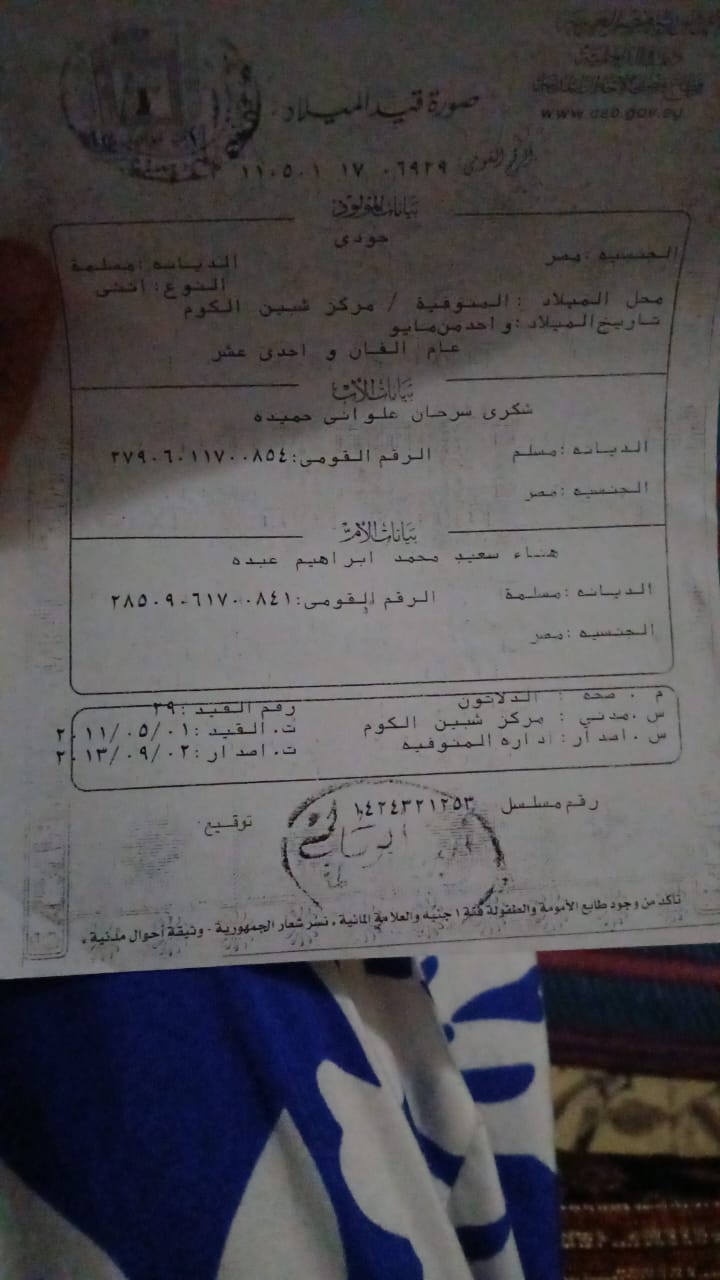 www.cso.gov.eg
صورة قيد الميلاد
الرقم القومى ١١٠٥٠١ ١٧ ٠٦٩٢٩
بيانات المولود
جودى
الجنسيه :مصر الديانه :مسلمة
النوع : انثى
محل الميلاد : المنوفية / مركز شبين الكوم
تاريخ الميلاد : واحد من مايو
عام الفان و احدى عشر
بيانات الأب
شكرى سرحان علوانى حميده
الديانه :مسلم الرقم القومى:٢٧٩٠٦٠١١٧٠٠٨٥٤
الجنسيه :مصر
بيانات الأم
هناء سعيد محمد ابراهيم عبده
الديانه :مسلمة الرقم القومى:٢٨٥٠٩٠٦١٧٠٠٨٤١
الجنسيه :مصر
م . صحه : الدلاتون رقم القيد :٢٩
س .مدني : مركز شبين الكوم ت. القيد :٢٠١١/٠٥/٠١
س . اصدار : اداره المنوفيه ت. اصدار :٢٠١٣/٠٩/٠٢
رقم مسلسل ١٤٢٤٣٢١٢٥٣ توقيع
تأكد من وجود طابع الأمومة والطفولة فئة ١ جنيه والعلامة المائية ، نسر شعار الجمهورية - وثيقة أحوال مدنية .